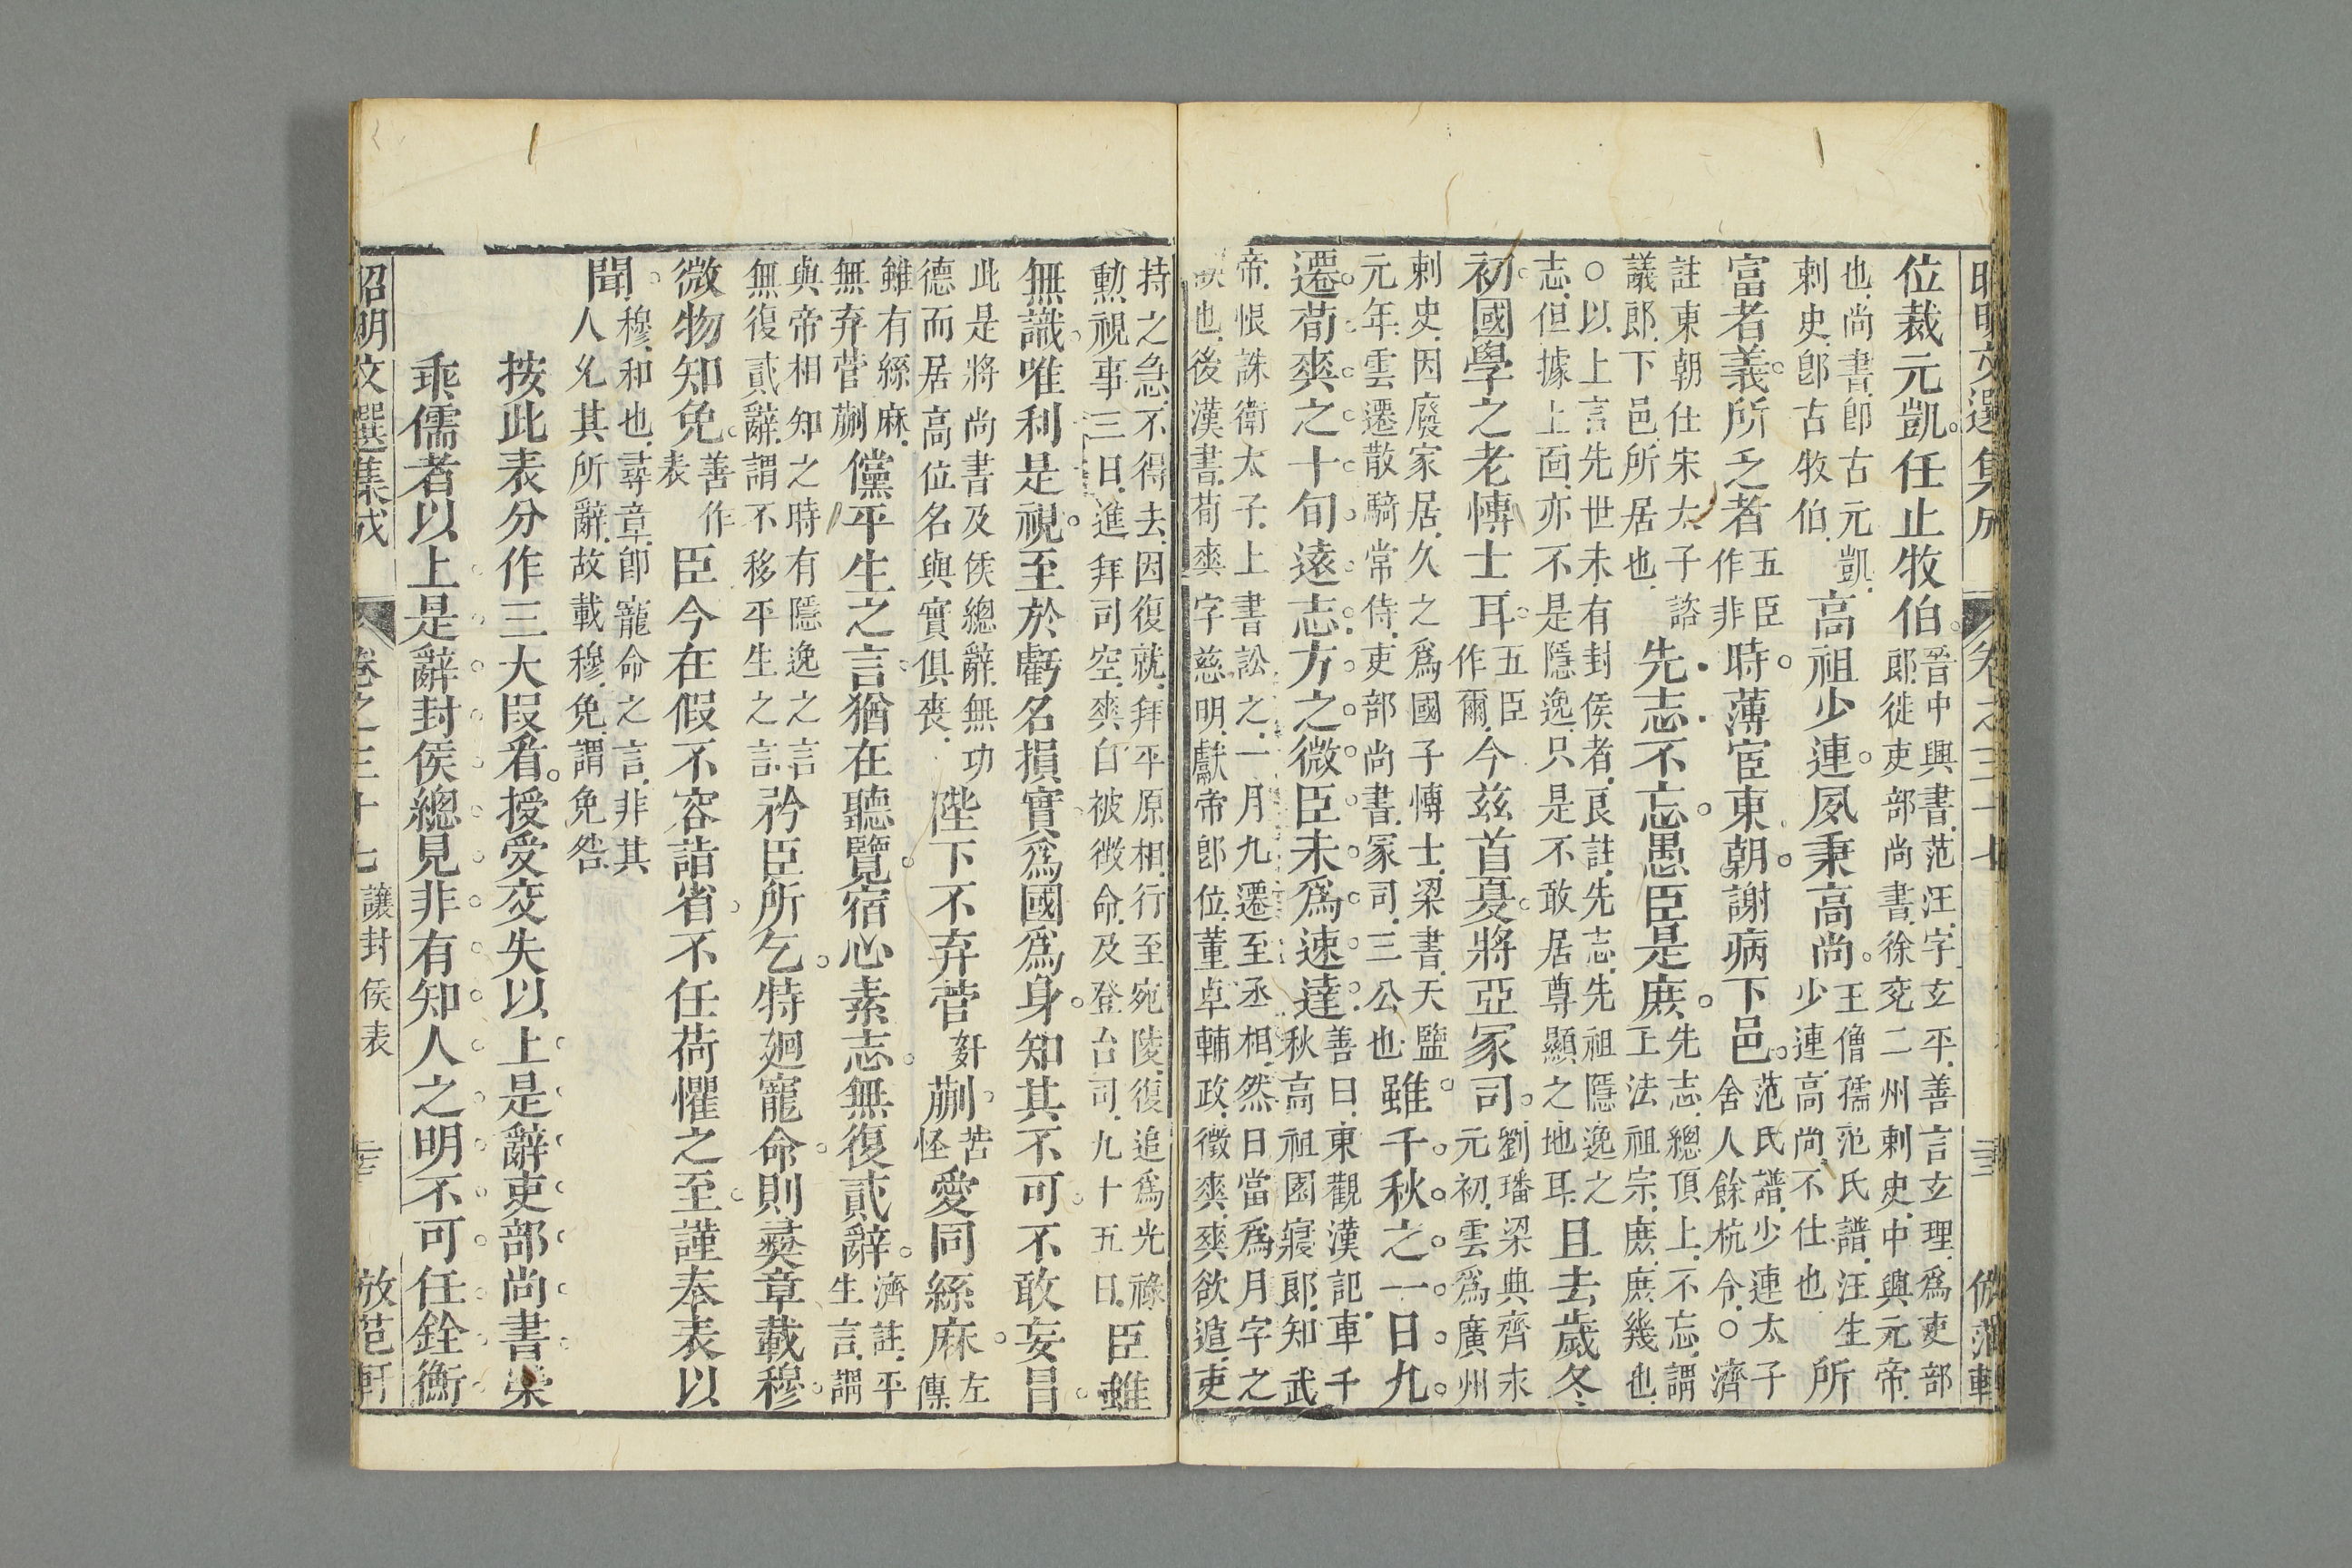 昭明文選集成 卷之三十七 三 倣范軒
位裁元凱任止牧伯 晉中興書范汪字玄平善言玄理爲吏部
郎徙吏部尚書徐兗二州剌史中興元帝
也尚書卽古元凱 高祖少連夙秉高尚 王僧孺范氏譜汪生
剌史卽古牧伯 少連高尚不仕也 所
富者義所乏者 五臣作非 時薄宦東朝謝病下邑 范氏譜少連太子
舍人餘杭令○濟
註東朝仕宋太子諮
議郎下邑所居也 先志不忘愚臣是庶 先志總頂上不忘謂
上法祖宗庶庶幾也
○以上言先世未有封侯者良註先志先祖隱逸之
志但據上靣亦不是隱逸只是不敢居尊顯之地耳 且去歲冬
初國學之老博士耳 五臣作爾 今茲首夏將亞冢司 劉璠梁典齊末
元初雲爲廣州
剌史因廢家居久之爲國子博士梁書天鹽
元年雲遷散騎常侍吏部尚書冢司三公也 雖千秋之一日九
遷荀爽之十旬遠志方之微臣未爲速達 善曰東觀漢記車千
秋高祖園寢郎知武
帝恨誅衛太子上書訟之一月九遷至丞相然日當爲月字之
誤也後漢書荀爽字慈明獻帝卽位董卓輔政徵爽爽欲遁吏
持之急不得去因復就拜平原相行至宛陵復追爲光祿
勳視事三日進拜司空爽自被徵命及登台司九十五日 臣雖
無識唯利是視至於虧名損實爲國爲身知其不可不敢妄冒
此是將尚書及侯總辭無功
德而居高位名與實俱喪 陛下不弃菅 姧 蒯 苦怪 愛同絲麻 左傳
雖有絲麻
無弃菅蒯 儻平生之言猶在聽覽宿心素志無復貳辭 濟註平
生言謂
與帝相知之時有隱逸之言
無復貳辭謂不移平生之言 矜臣所乞特廻寵命則彝章載穆
微物知免 善作表 臣今在假不容詣省不任荷懼之至謹奉表以
聞 穆和也尋章卽寵命之言非其
人兊其所辭故載穆免謂免咎
按此表分作三大叚看授受交失以上是辭吏部尚書榮
乖儒者以上是辭封侯總見非有知人之明不可任銓衡
昭明文選集成 卷之三十七 讓封侯表 三 倣范軒